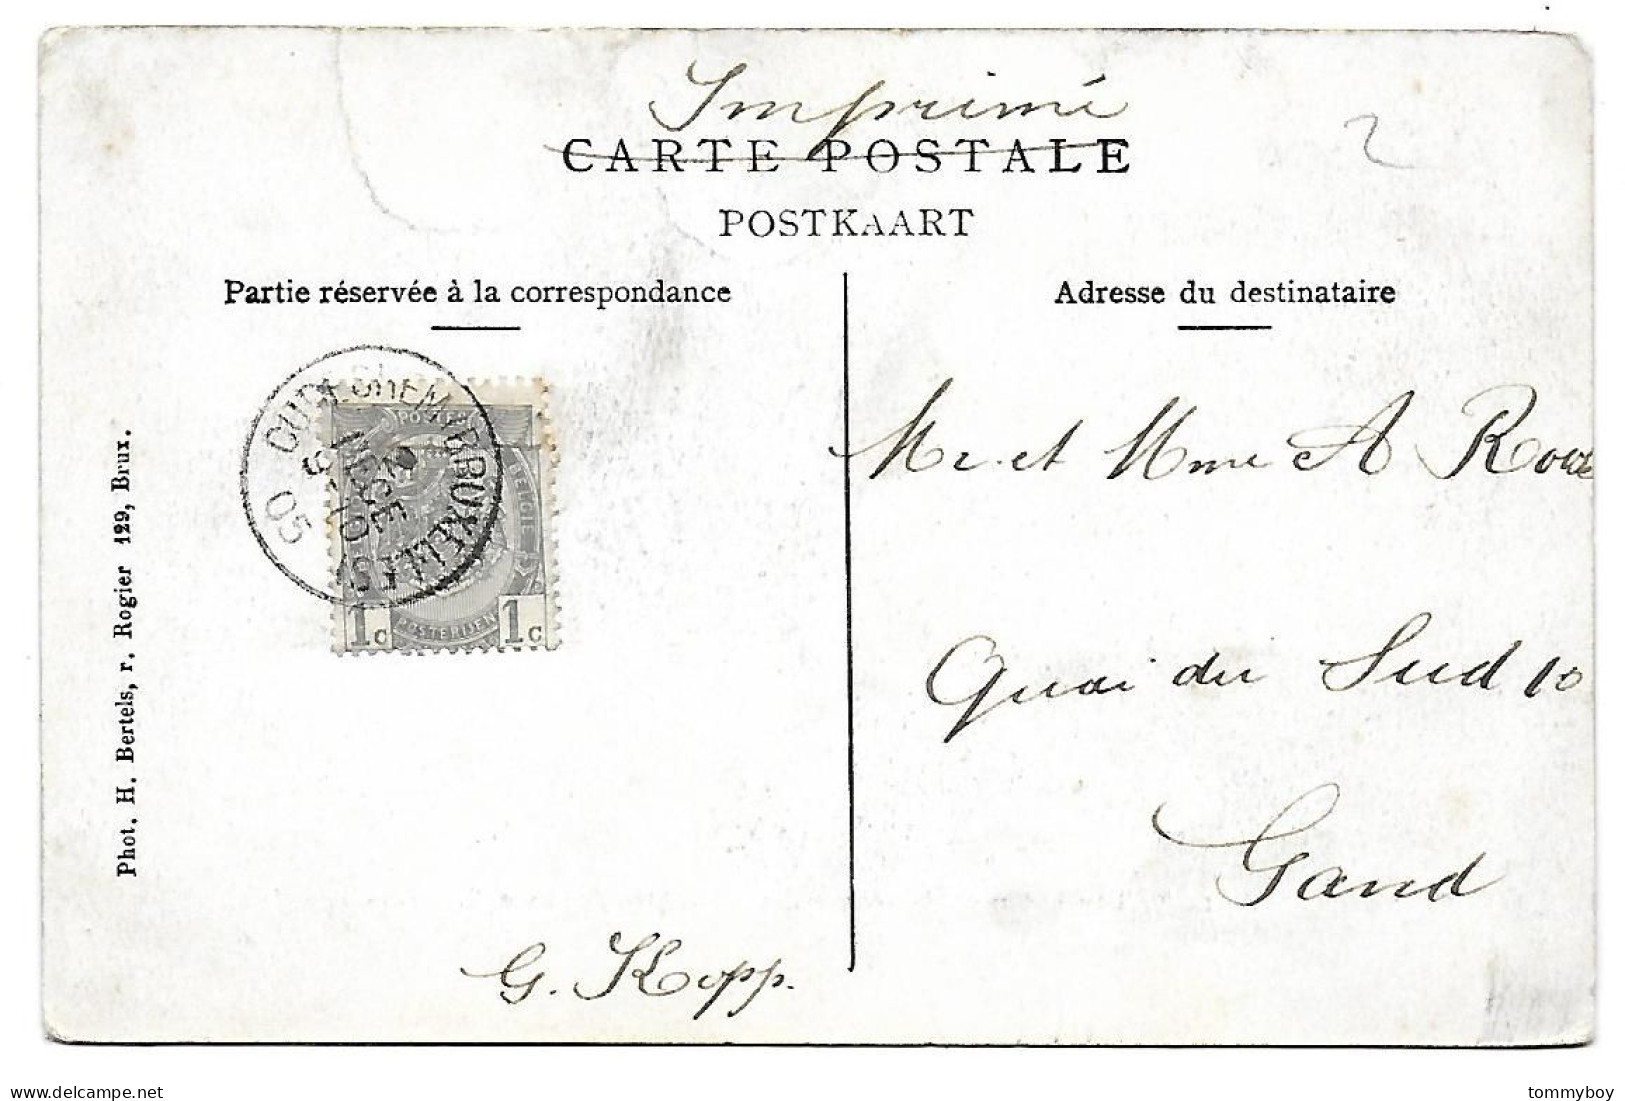 Imprimé
CARTE POSTALE
POSTKAART
Partie réservée à la correspondance
Adresse du destinataire
CUREGHEM (BRUXELLES)
05
POSTES
BELGIE
1c POSTERIJEN 1c
Mr et Mme A
Quai du Sud 10
Gand
G. Kopp.
Phot. H. Bertels, r. Rogier 129, Brux.
2
delcampe.net
tommyboy